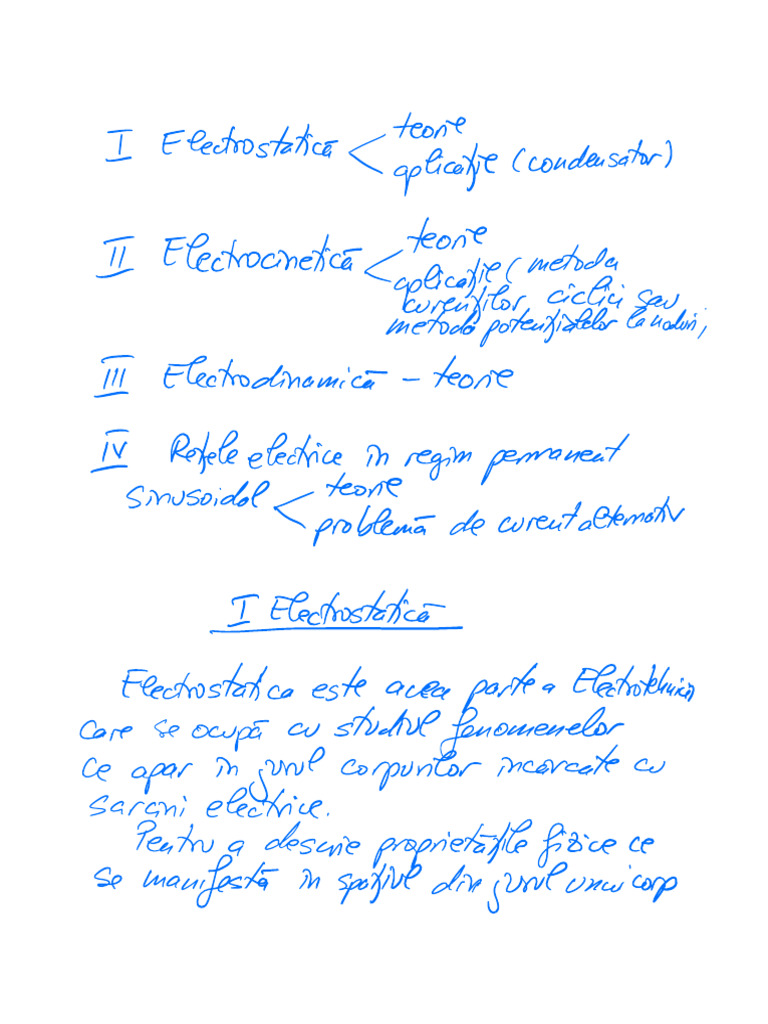 teorie
I Electrostatică < aplicație (condensator)
teorie
II Electrocinetică < aplicație (metoda
curenților ciclici sau
metoda potențialelor la noduri,
III Electrodinamică - teorie
IV Rețele electrice în regim permanent
sinusoidal < teorie
problemă de curent alternativ
I Electrostatică
Electrostatica este acea parte a Electrotehnicii
care se ocupă cu studiul fenomenelor
ce apar în jurul corpurilor încărcate cu
sarcini electrice.
Pentru a descrie proprietățile fizice ce
se manifestă în spațiul din jurul unui corp